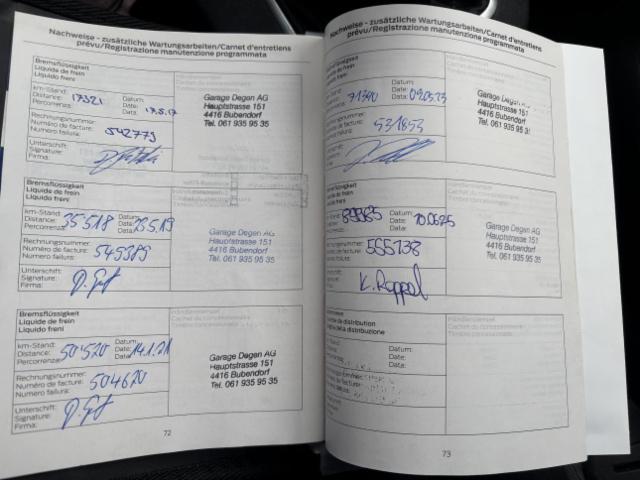 Nachweise - zusätzliche Wartungsarbeiten/Carnet d'entretiens
prévu/Registrazione manutenzione programmata
Bremsflüssigkeit
Liquide de frein
Liquido freni
km-Stand:
Distance: 17321 Datum:
Percorrenza: Date: 17.5.17
Data:
Rechnungsnummer:
Numéro de facture: 542779
Numero fattura:
Unterschrift:
Signature:
Firma:
Garage Degen AG
Hauptstrasse 151
4416 Bubendorf
Tel. 061 935 95 35
Bremsflüssigkeit
Liquide de frein
Liquido freni
km-Stand:
Distance: 35'518 Datum:
Percorrenza: Date: 23.5.19
Data:
Rechnungsnummer:
Numéro de facture: 545389
Numero fattura:
Unterschrift:
Signature:
Firma:
Garage Degen AG
Hauptstrasse 151
4416 Bubendorf
Tel. 061 935 95 35
Bremsflüssigkeit
Liquide de frein
Liquido freni
km-Stand:
Distance: 50'520 Datum:
Percorrenza: Date: 14.1.21
Data:
Rechnungsnummer:
Numéro de facture: 504620
Numero fattura:
Unterschrift:
Signature:
Firma:
Garage Degen AG
Hauptstrasse 151
4416 Bubendorf
Tel. 061 935 95 35
72
Nachweise - zusätzliche Wartungsarbeiten/Carnet d'entretiens
prévu/Registrazione manutenzione programmata
de frein
freni
Datum:
Date: 09.05.23
Data:
531853
Garage Degen AG
Hauptstrasse 151
4416 Bubendorf
Tel. 061 935 95 3
de frein
freni
Datum:
Date: 10.06.25
Data:
555138
K. Rappel
Garage Degen AG
Hauptstrasse 151
4416 Bubendorf
Tel. 061 935 95 35
de distribution
della distribuzione
Händlerstempel
Cachet du concessionnaire
Timbro concessionario
Datum:
Date:
Data:
73